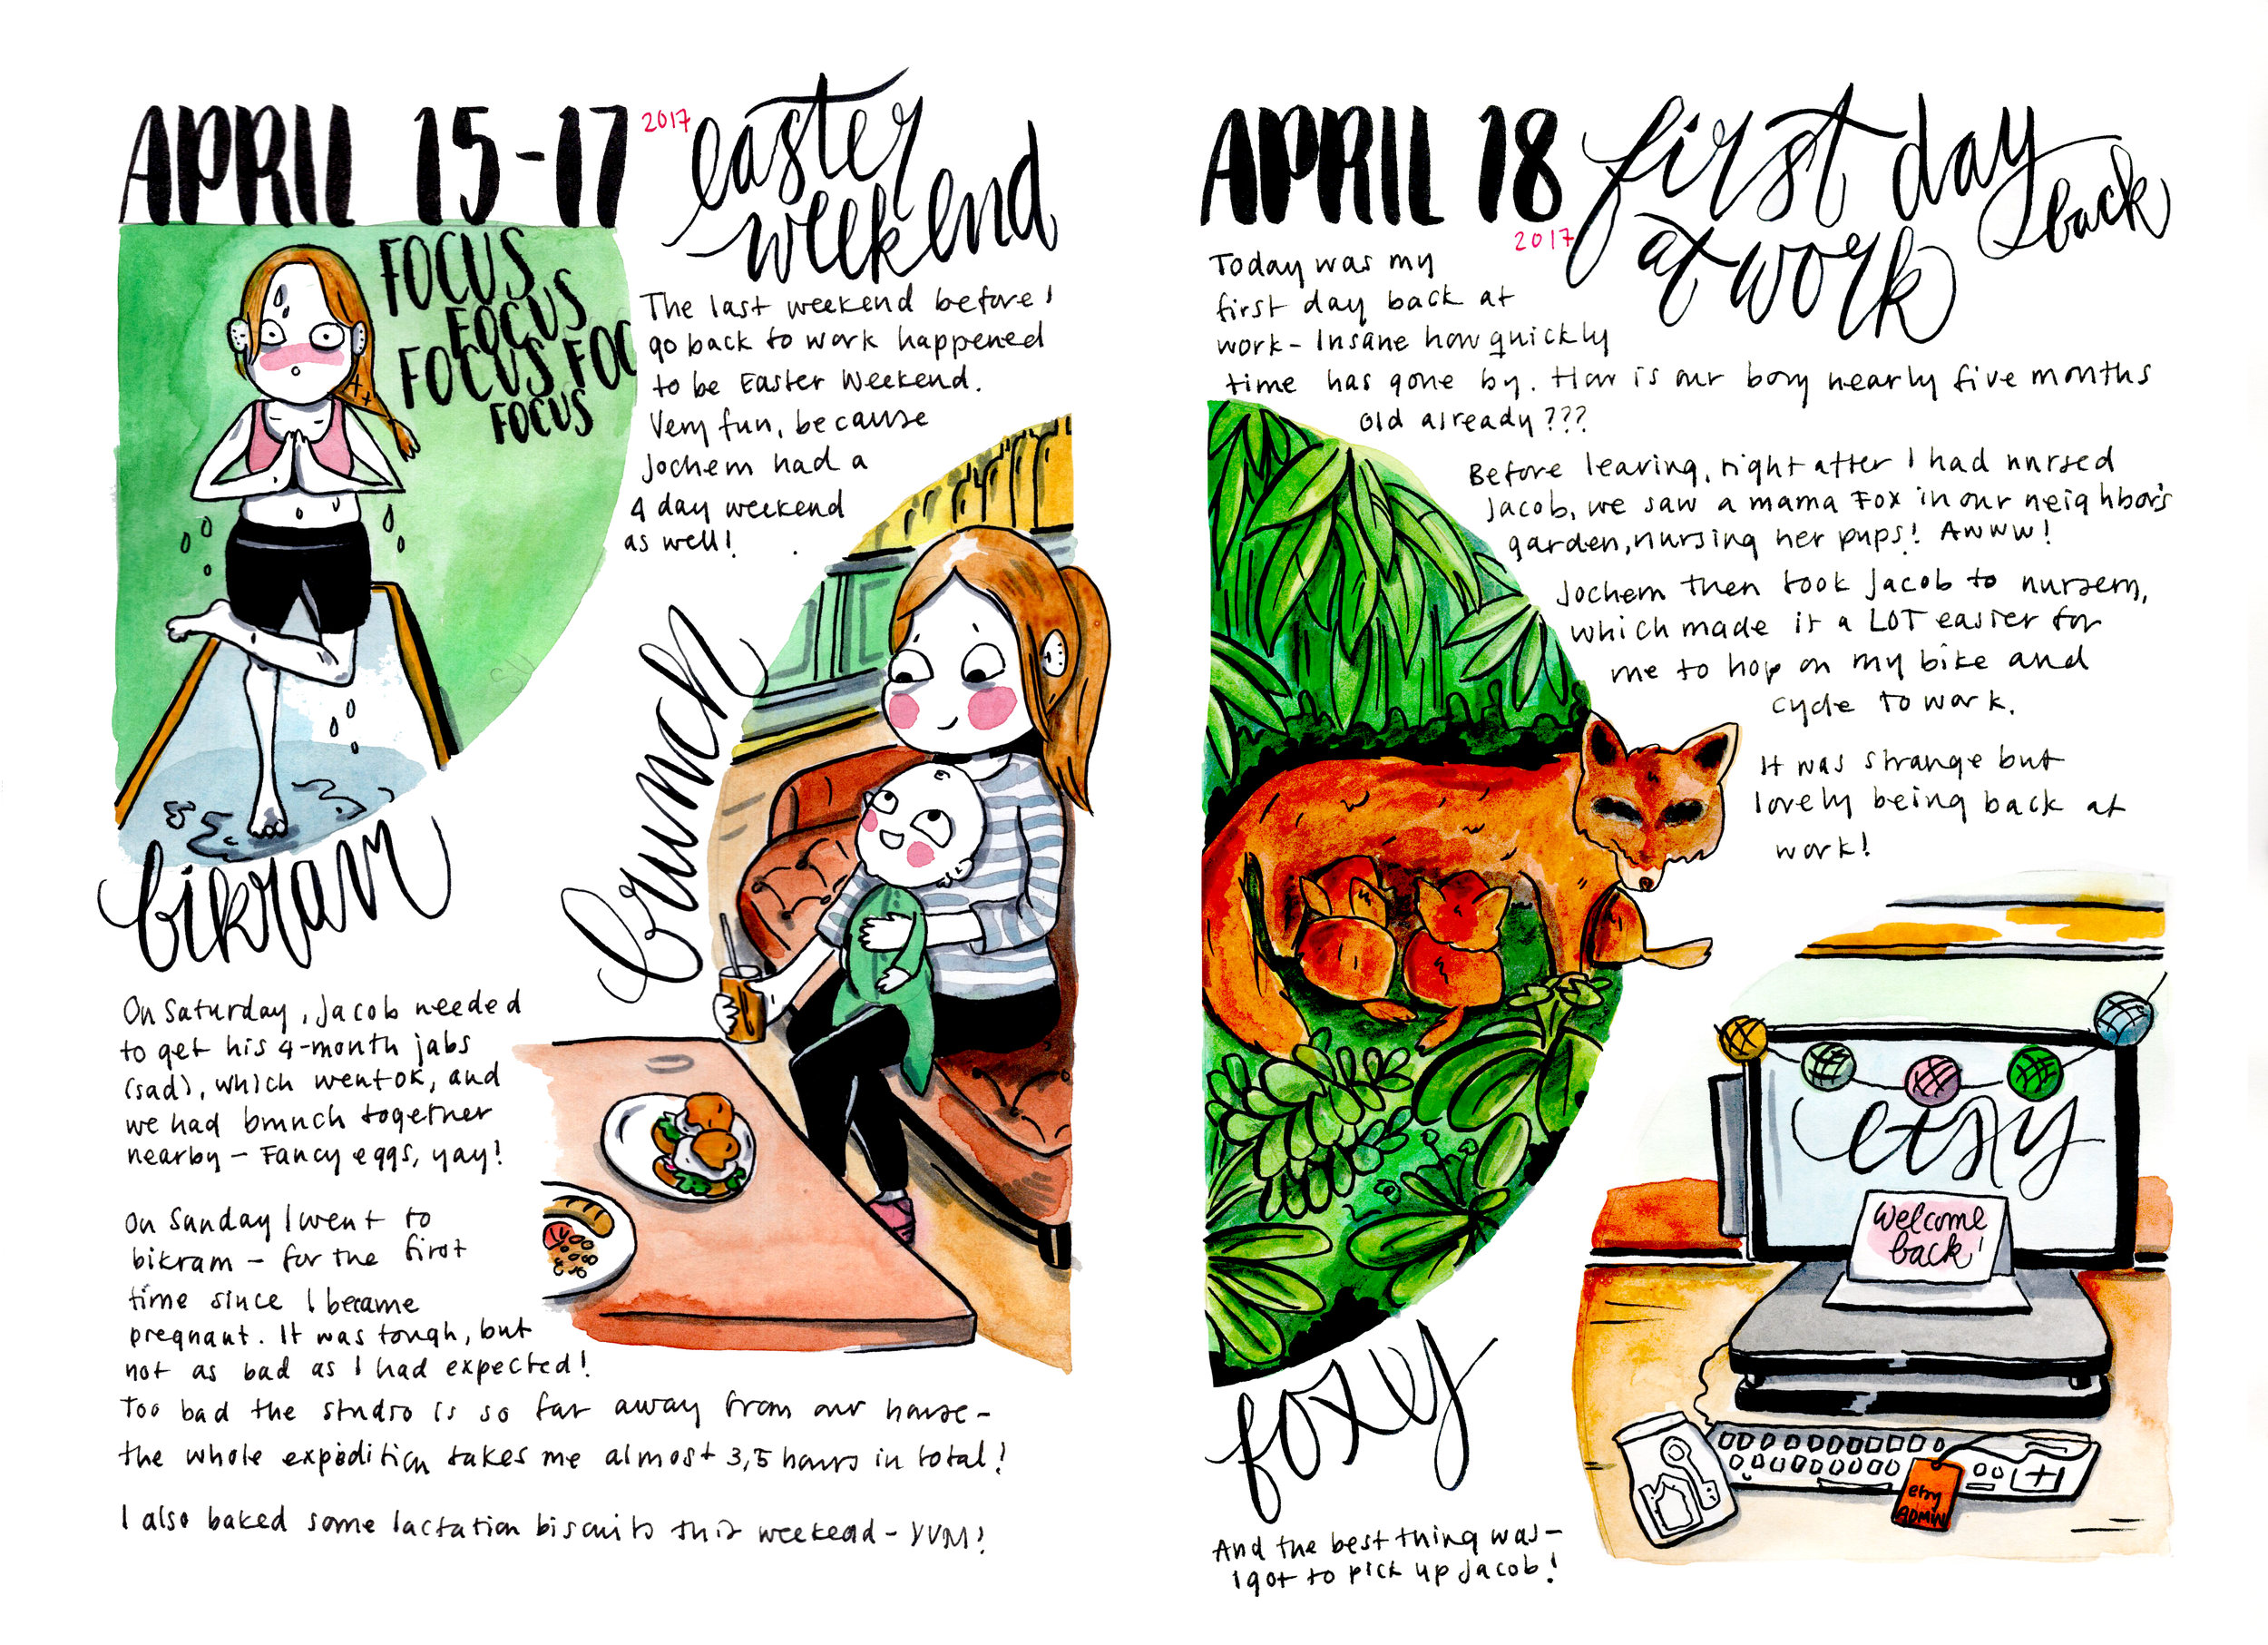 APRIL 15-17
2017
easter
weekend
FOCUS
FOCUS
FOCUS FOC
FOCUS
The last weekend before I
go back to work happened
to be Easter Weekend.
Very fun, because
Jochem had a
4 day weekend
as well!
bikram
brunch
On Saturday, Jacob needed
to get his 4-month jabs
(sad), which went ok, and
we had brunch together
nearby - Fancy eggs, yay!
On Sunday I went to
bikram - for the first
time since I became
pregnant. It was tough, but
not as bad as I had expected!
Too bad the studio is so far away from our house -
the whole expedition takes me almost 3,5 hours in total!
I also baked some lactation biscuits this weekend - YUM!
APRIL 18
2017
first day
back
at work
Today was my
first day back at
work - Insane how quickly
time has gone by. How is our boy nearly five months
old already???
Before leaving, right after I had nursed
Jacob, we saw a mama Fox in our neighbor's
garden, nursing her pups! Awww!
Jochem then took Jacob to nursery,
which made it a LOT easier for
me to hop on my bike and
cycle to work.
It was strange but
lovely being back at
work!
etsy
Welcome
back!
etsy
ADMIN
foxy
And the best thing was -
I got to pick up Jacob!